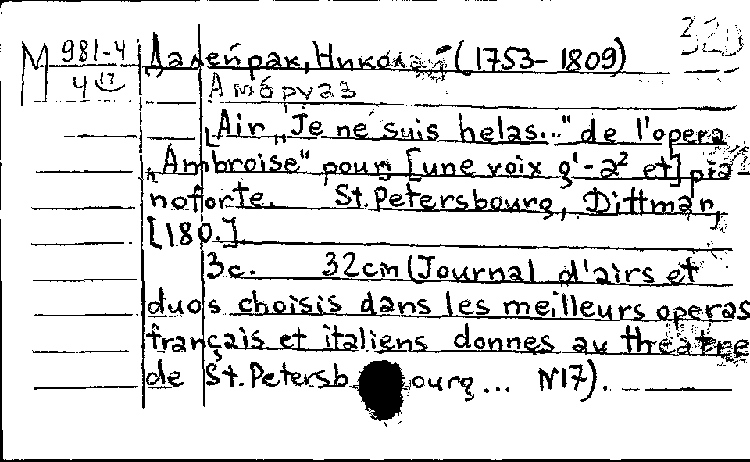 320
М 981-4
4
Далейрак, Николай (1753-1809)
Амбруаз
[Air „Je ne suis helas..." de l'opera
„Ambroise" pour] [une voix g'-a² et] pia
noforte. St. Petersbourg, Dittmar,
[180.]
3с. 32cm (Journal d'airs et
duos choisis dans les meilleurs operas
français et italiens donnes au theatre
de St. Petersbourg... N17).